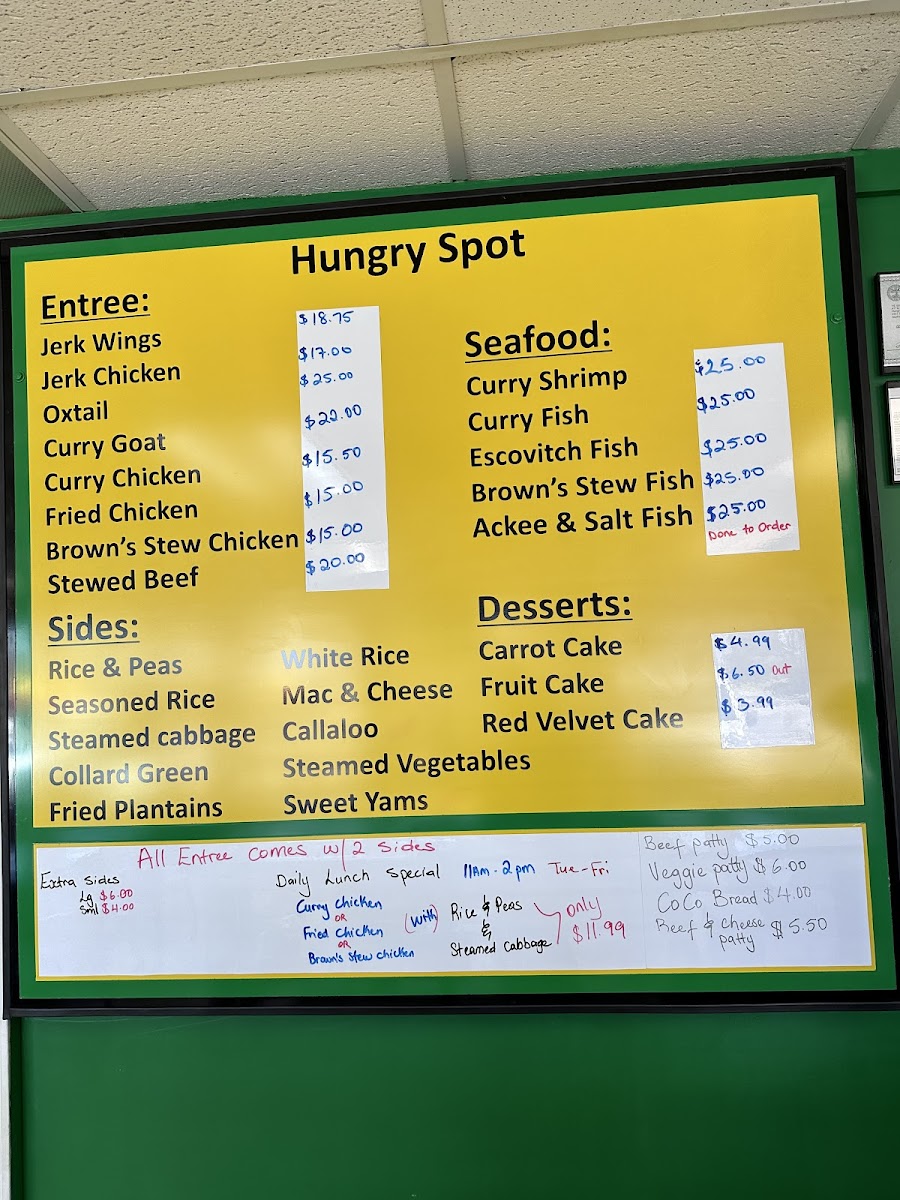 Hungry Spot
Entree:
Jerk Wings $18.75
Jerk Chicken $17.00
Oxtail $25.00
Curry Goat $22.00
Curry Chicken $15.50
Fried Chicken $15.00
Brown's Stew Chicken $15.00
Stewed Beef $20.00
Seafood:
Curry Shrimp $25.00
Curry Fish $25.00
Escovitch Fish $25.00
Brown's Stew Fish $25.00
Ackee & Salt Fish $25.00
Done to Order
Sides:
Rice & Peas
Seasoned Rice
Steamed cabbage
Collard Green
Fried Plantains
White Rice
Mac & Cheese
Callaloo
Steamed Vegetables
Sweet Yams
Desserts:
Carrot Cake $4.99
Fruit Cake $6.50 Out
Red Velvet Cake $3.99
All Entree comes w/ 2 sides
Extra Sides
Lg $6.00
Sml $4.00
Daily Lunch Special 11Am - 2pm Tue-Fri
Curry chicken
OR
Fried chicken
OR
Brown's Stew chicken
(with)
Rice & Peas
&
Steamed Cabbage
only
$11.99
Beef patty $5.00
Veggie patty $6.00
CoCo Bread $4.00
Beef & cheese patty $5.50